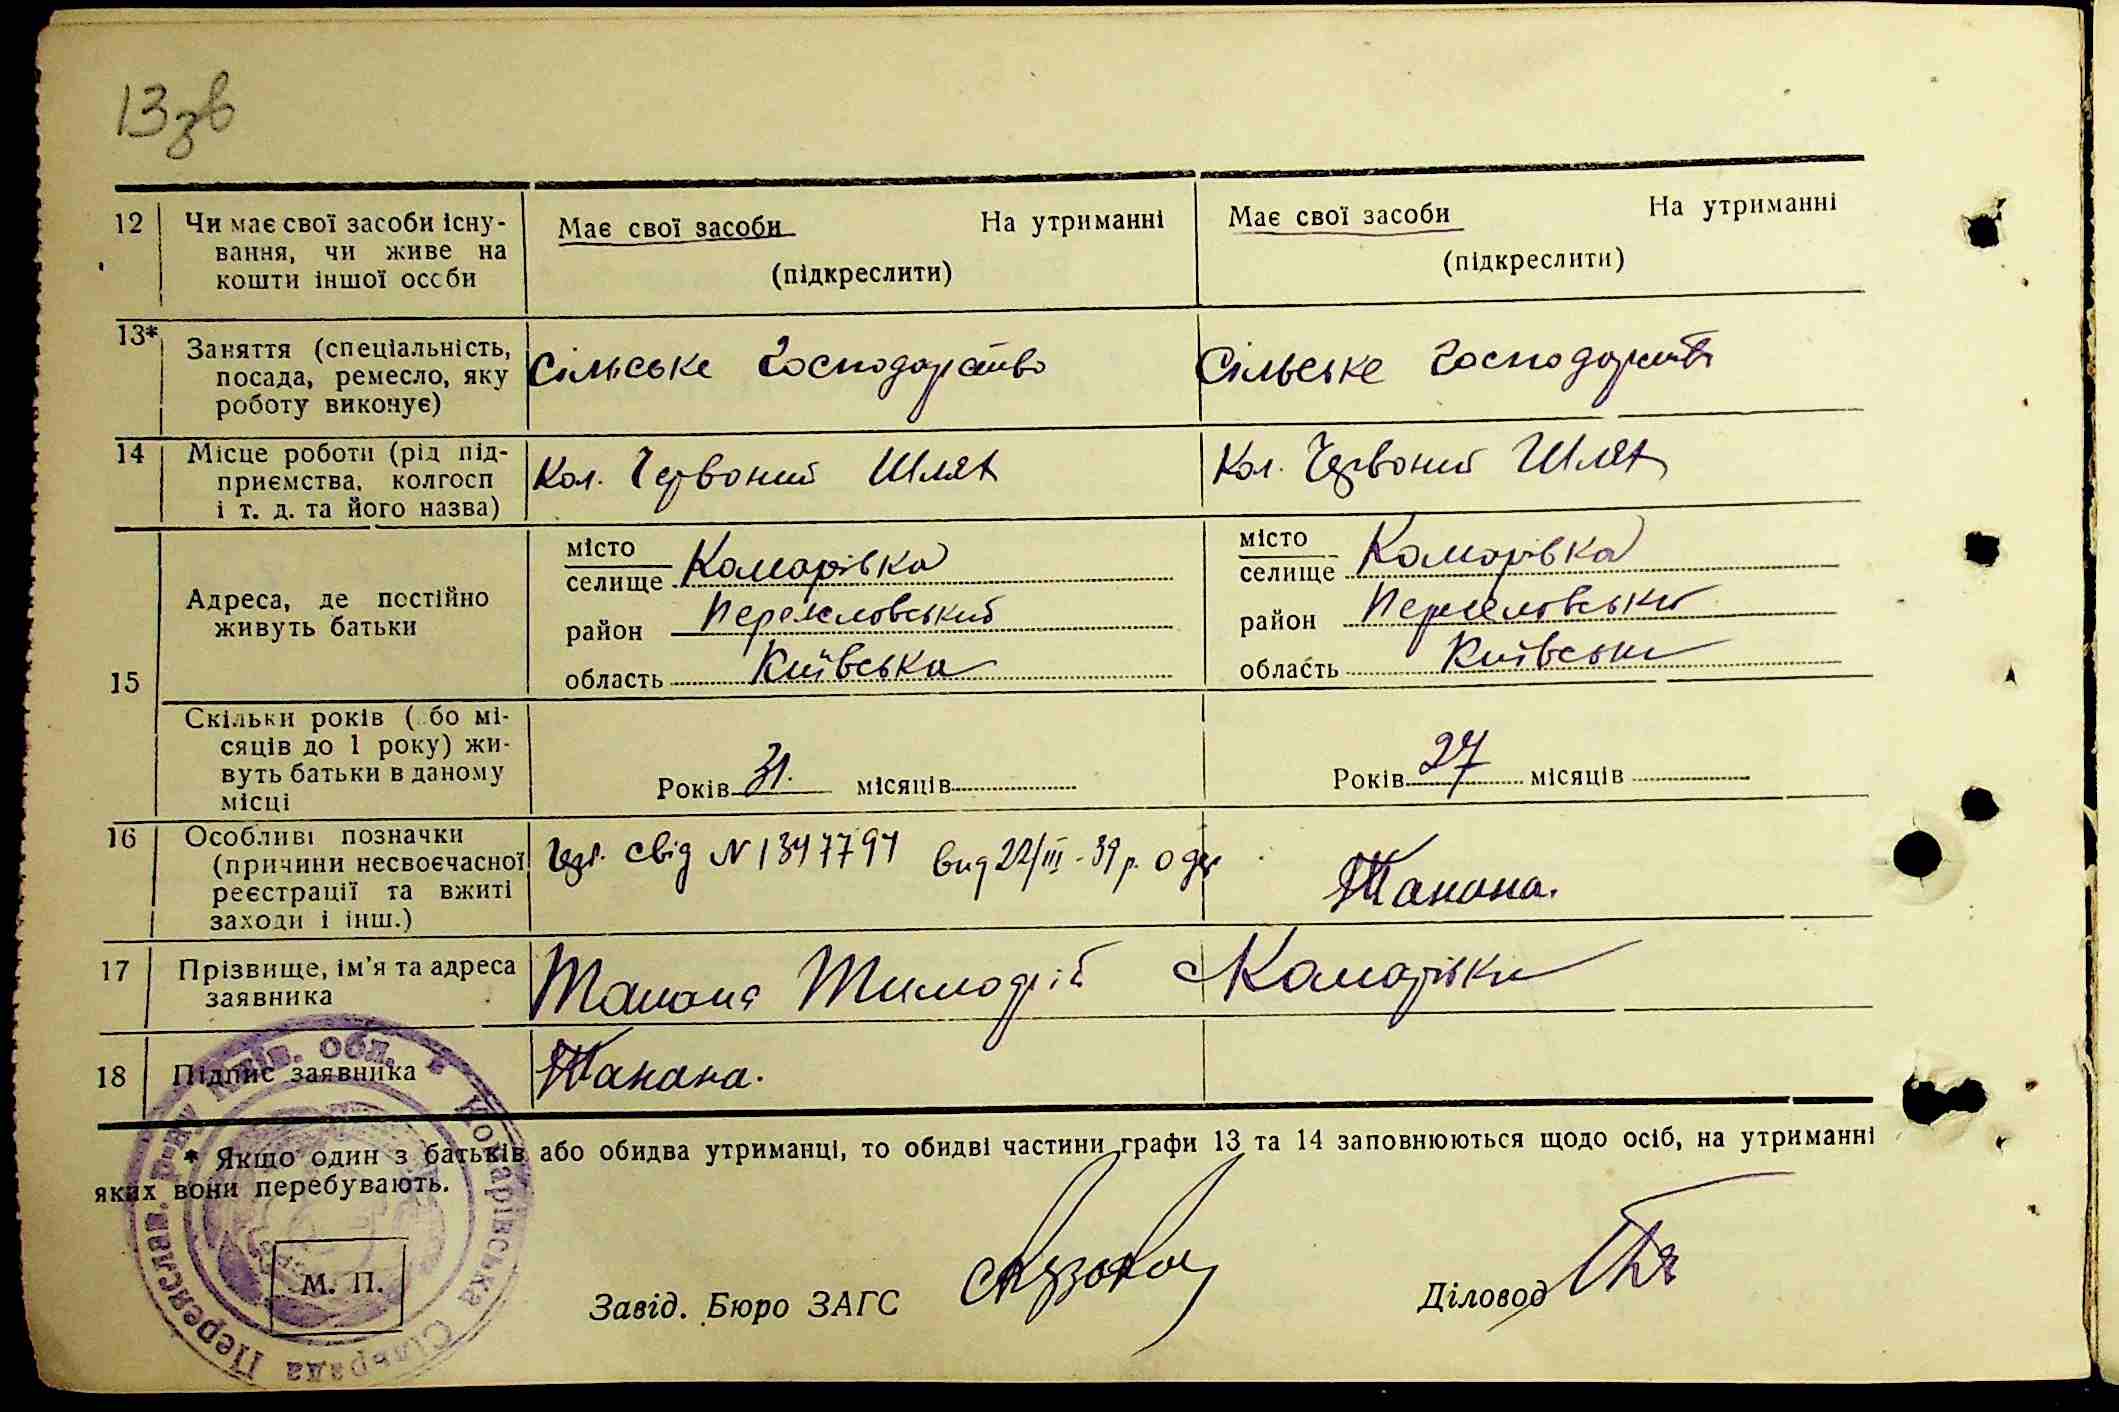 13зв
12
Чи має свої засоби існу-
вання, чи живе на
кошти іншої особи
Має свої засоби На утриманні
(підкреслити)
Має свої засоби На утриманні
(підкреслити)
13*
Заняття (спеціальність,
посада, ремесло, яку
роботу виконує)
Сільське Господарство
Сільське Господарство
14
Місце роботи (рід під-
приємства, колгосп
і т. д. та його назва)
Кол. Червоний Шлях
Кол. Червоний Шлях
15
Адреса, де постійно
живуть батьки
місто
селище Комарівка
район Переяславський
область Київська
місто
селище Комарівка
район
область Київська
Скільки років (або мі-
сяців до 1 року) жи-
вуть батьки в даному
місці
Років 31. місяців
Років 27 місяців
16
Особливі позначки
(причини несвоєчасної
реєстрації та вжиті
заходи і інш.)
свід N 1347794 вид 22/III-39 р.
Танана.
17
Прізвище, ім'я та адреса
заявника
Танана Комарівка
18
Підпис заявника
Танана.
* Якщо один з батьків або обидва утриманці, то обидві частини графи 13 та 14 заповнюються щодо осіб, на утриманні
яких вони перебувають.
М. П.
Завід. Бюро ЗАГС
Діловод
Комарівська Сільрада Переяслав. р-ну Київ. обл.